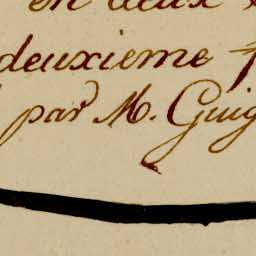 en deux
deuxieme
par M. Guig